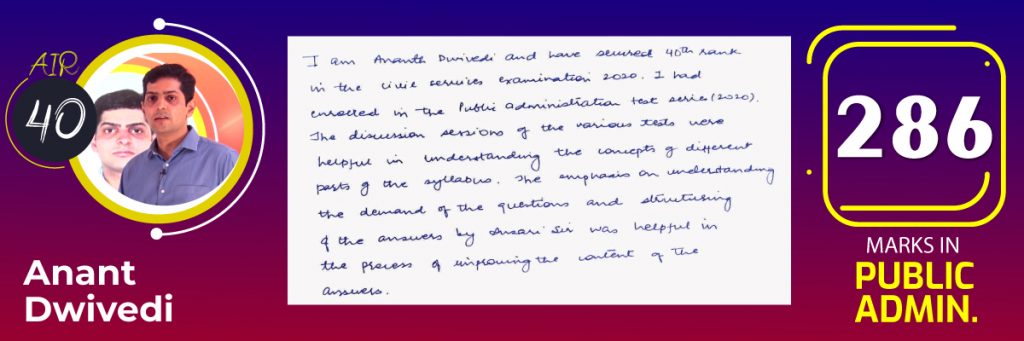 AIR
40
Anant
Dwivedi
I am Ananth Dwivedi and have secured 40th rank
in the civil services examination 2020. I had
enrolled in the Public administration test series (2020).
The discussion sessions of the various tests were
helpful in understanding the concepts of different
parts of the syllabus. The emphasis on understanding
the demand of the questions and structuring
of the answers by Ansari Sir was helpful in
the process of improving the content of the
answers.
286
MARKS IN
PUBLIC
ADMIN.